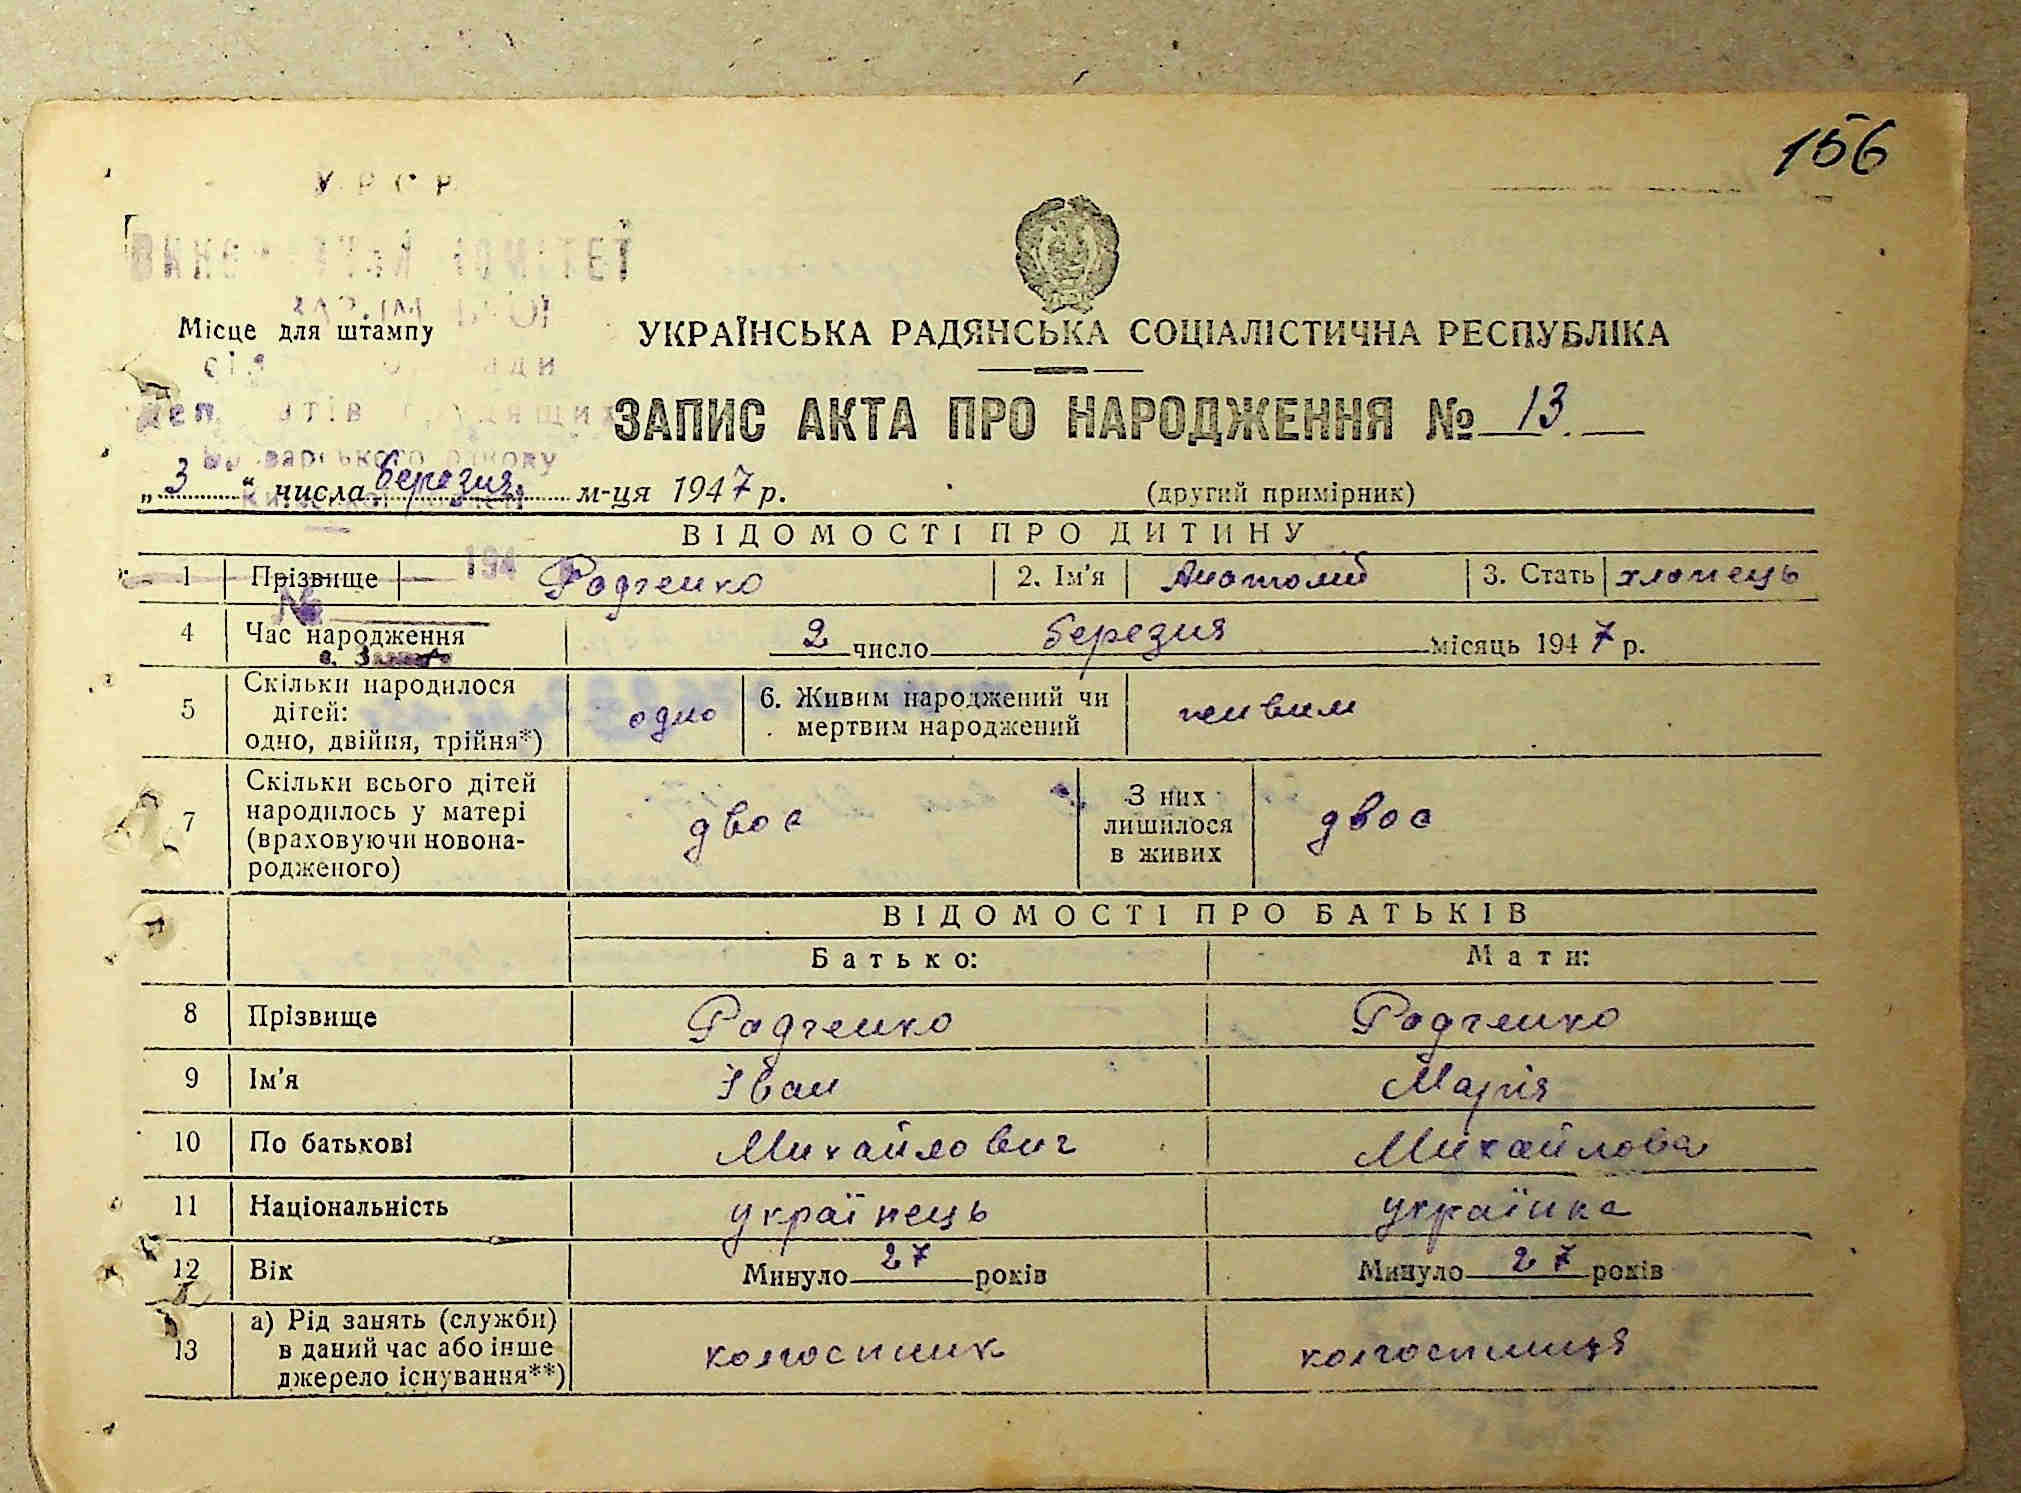 156
У Р С Р
Місце для штампу
УКРАЇНСЬКА РАДЯНСЬКА СОЦІАЛІСТИЧНА РЕСПУБЛІКА
ЗАПИС АКТА ПРО НАРОДЖЕННЯ № 13.
„ 3 “ числа березня м-ця 1947 р.
(другий примірник)
ВІДОМОСТІ ПРО ДИТИНУ
1 Прізвище Радченко 2. Ім'я Анатолій 3. Стать хлопець
194
№
4 Час народження 2 число березня місяць 1947 р.
5 Скільки народилося дітей: одно, двійня, трійня*) одно 6. Живим народжений чи мертвим народжений живим
7 Скільки всього дітей народилось у матері (враховуючи новонародженого) двоє З них лишилося в живих двоє
ВІДОМОСТІ ПРО БАТЬКІВ
Батько: Мати:
8 Прізвище Радченко Радченко
9 Ім'я Іван Марія
10 По батькові Михайлович Михайлова
11 Національність українець українка
12 Вік Минуло 27 років Минуло 27 років
13 а) Рід занять (служби) в даний час або інше джерело існування**) колгоспник колгоспниця